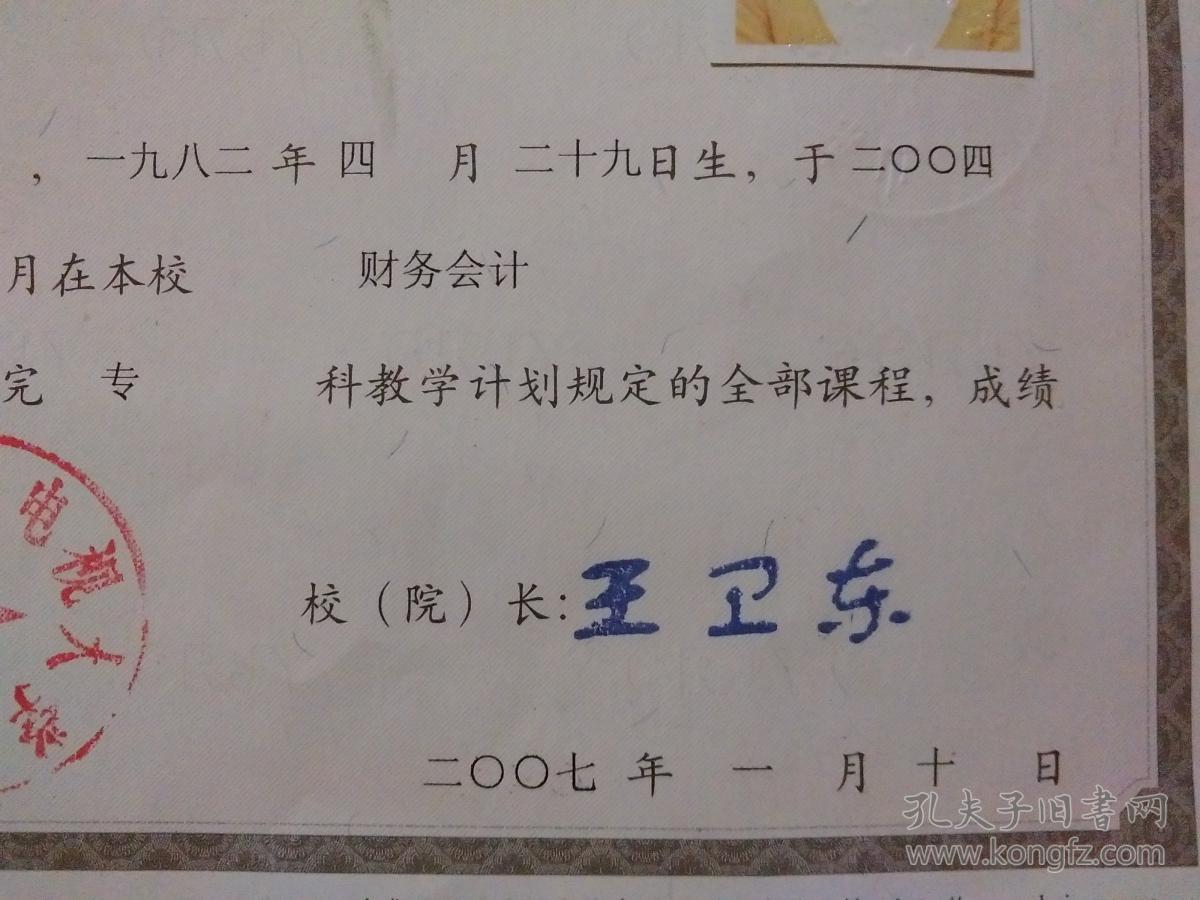 ，一九八二年四 月二十九日生，于二〇〇四
月在本校 财务会计
完 专 科教学计划规定的全部课程，成绩
电视大学
校（院）长：王卫东
二〇〇七年 一 月 十 日
孔夫子旧書网
www.kongfz.com